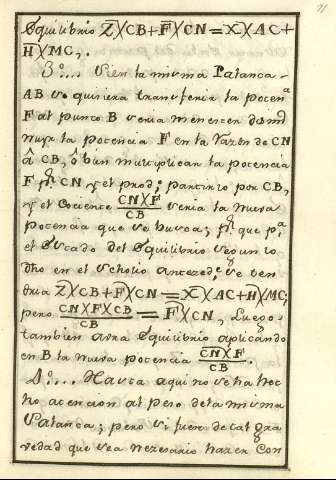 Equilibrio Z̄ X CB + F̄ X CN = X̄ X AC +
H̄ X MC,.
3º.... Si en la misma Palanca
AB se quisiera transferir la potenª
F al punto B seria menester dism
nuir la potencia F en la razon de CN
â CB, ó bien multiplicar la potencia
F pʳ. CN, y el prod; partirlo por CB,
y el Cociente CN X F / CB seria la nueva
potencia que se busca; pʳ. que pª
el Estado del Equilibrio segun lo
dho en el Scholio antezedᵉ. se ten
dria Z̄ X CB + F̄ X CN = X̄ X AC + H̄ X MC;
pero CN X F X CB / CB = F X CN, Luego
tambien avra Equilibrio aplicando
en B la nueva potencia CN X F / CB.
4º.... Hasta aqui no se ha hec
ho atencion al peso de la misma
Palanca; pero si fuere de tal gra
vedad que sea nezesario hazer con